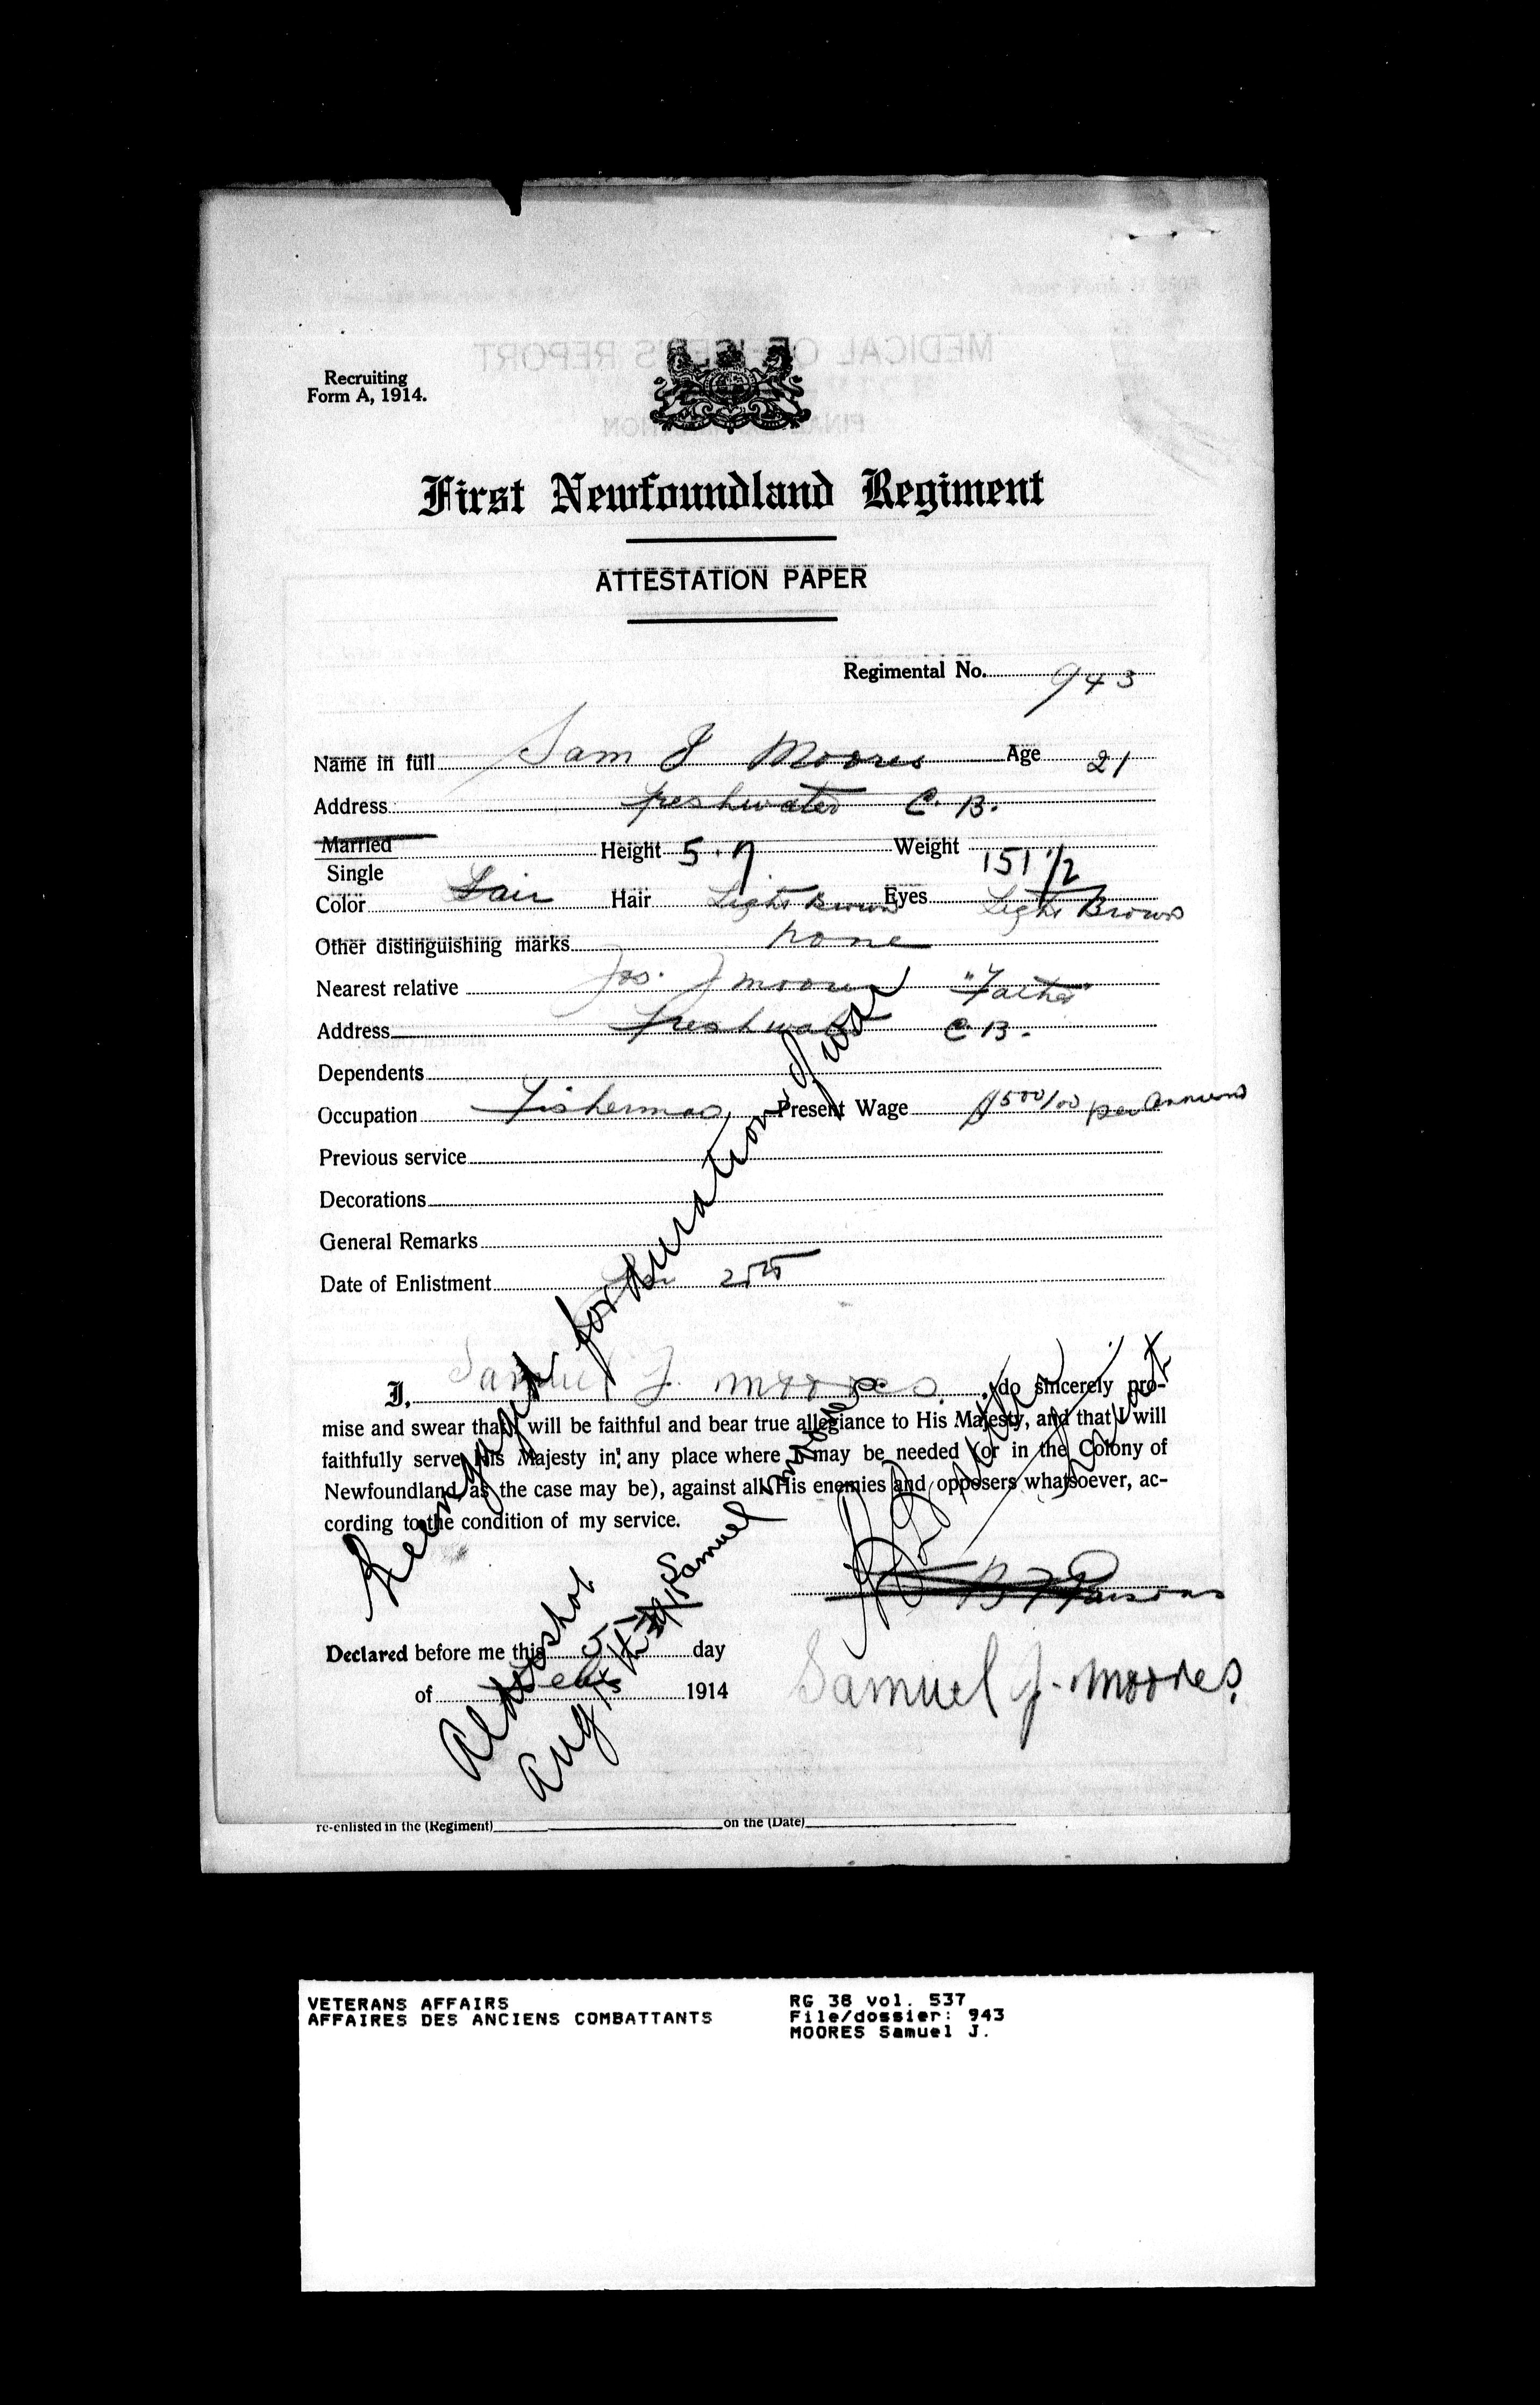 Recruiting
Form A, 1914.
First Newfoundland Regiment
ATTESTATION PAPER
Regimental No. 943
Name in full Sam J Moores Age 21
Address Freshwater C. B.
Married
Single
Height 5.7 Weight 151 1/2
Color Fair Hair Light Brown Eyes Light Brown
Other distinguishing marks none
Nearest relative Jos. J Moores "Father"
Address Freshwater C. B.
Dependents
Occupation Fisherman Present Wage $500/00 per annum
Previous service
Decorations
General Remarks
Date of Enlistment 25th
I, Samuel J. Moores, do sincerely pro-
mise and swear that I will be faithful and bear true allegiance to His Majesty, and that I will
faithfully serve His Majesty in any place where I may be needed (or in the Colony of
Newfoundland as the case may be), against all His enemies and opposers whatsoever, ac-
cording to the condition of my service.
B Parsons
Declared before me this 5 day
of 1914
Samuel J. Moores.
Reengaged for duration of war
Aldershot
Aug Samuel Moores
re-enlisted in the (Regiment) on the (Date)
MEDICAL OFFICER'S REPORT
FINAL EXAMINATION
VETERANS AFFAIRS
AFFAIRES DES ANCIENS COMBATTANTS
RG 38 vol. 537
File/dossier: 943
MOORES Samuel J.